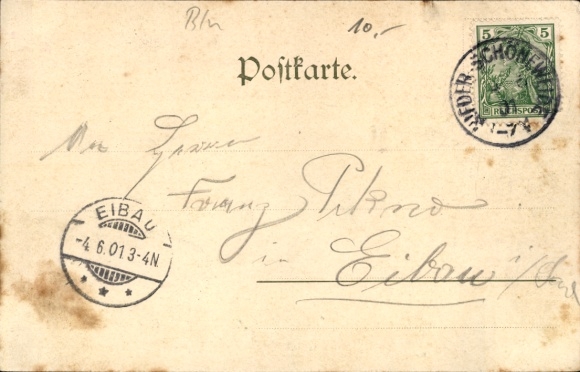 Bln
10.-
5 5
REICHSPOST
NIEDER-SCHÖNEWEIDE
Postkarte.
An Herrn
Franz
in Eibau i/
EIBAU
-4.6.01 3-4N
* * *